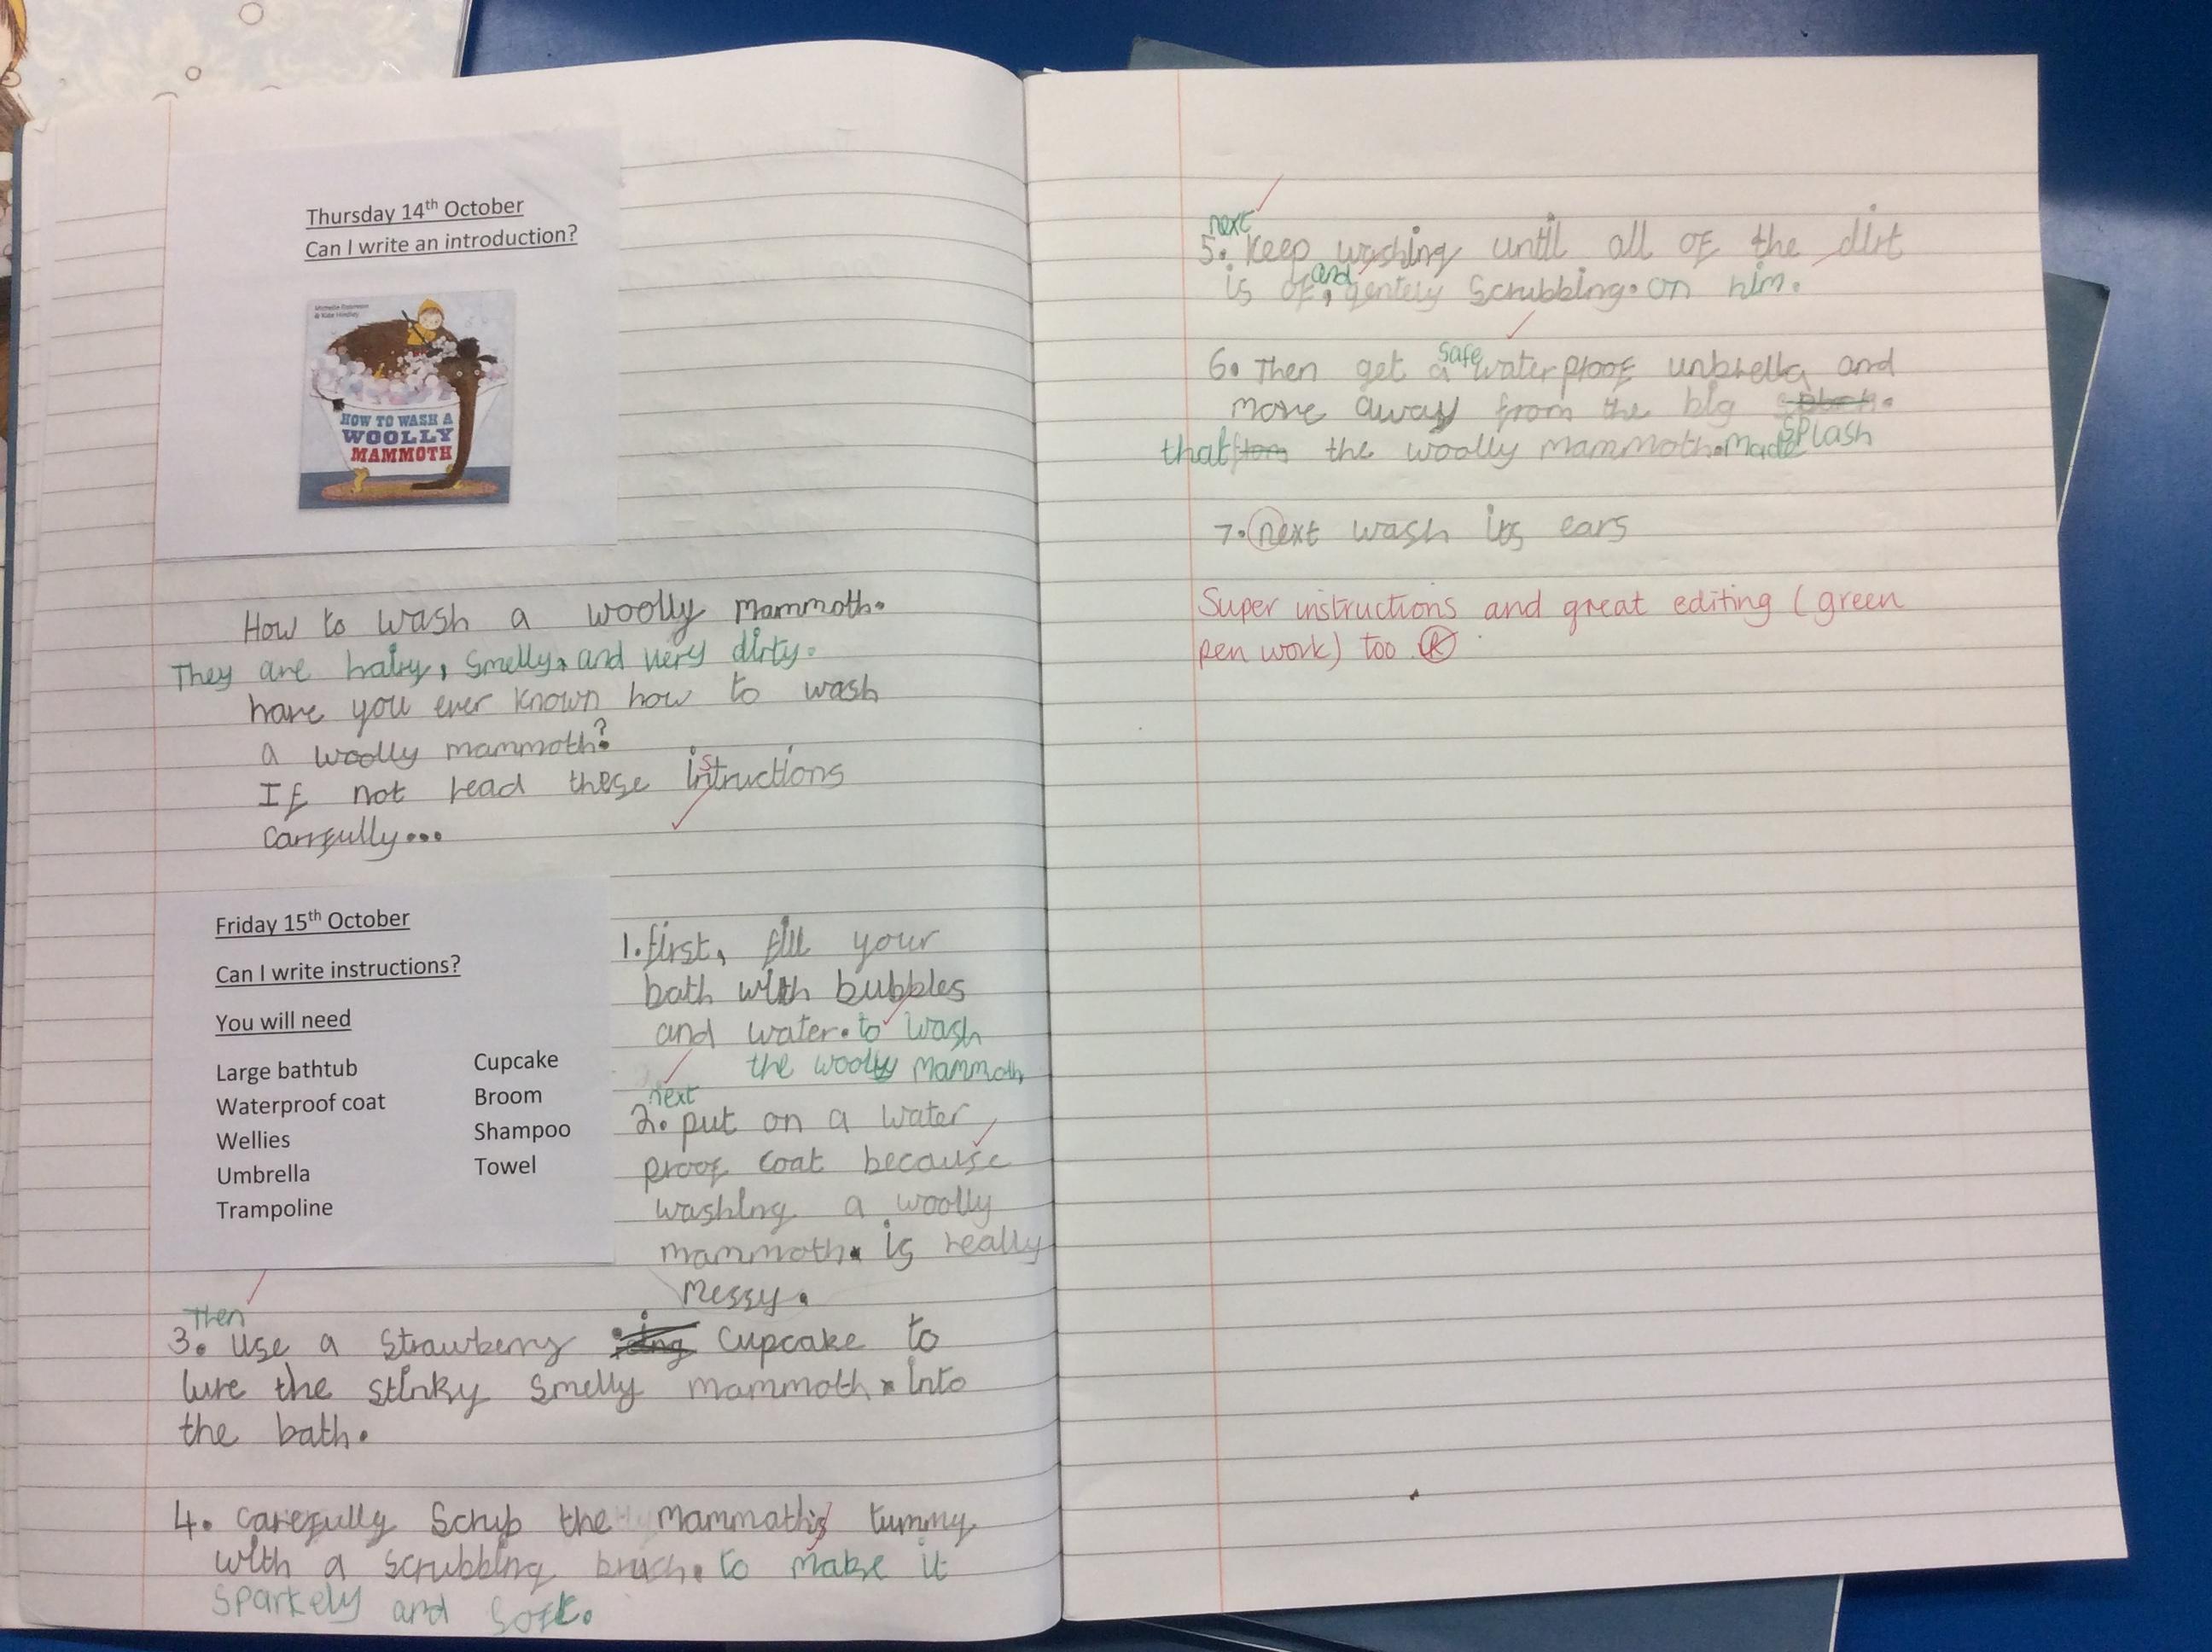 Thursday 14th October
Can I write an introduction?
Michelle Robinson
& Kate Hindley
HOW TO WASH A
WOOLLY
MAMMOTH
How to wash a woolly mammoth.
They are hairy, smelly, and very dirty.
have you ever known how to wash
a woolly mammoth?
If not read these istructions
carrfully...
Friday 15th October
Can I write instructions?
You will need
Large bathtub
Waterproof coat
Wellies
Umbrella
Trampoline
Cupcake
Broom
Shampoo
Towel
1. first, fill your
bath with bubbles
and water. to wash
the woolly mammoth
next
2. put on a water
proof coat because
washing a woolly
mammoth. is really
messy.
Then
3. use a strawberry icing cupcake to
lure the stinky smelly mammoth. into
the bath.
4. carefully scrub the mammoth's tummy
with a scrubbing bruch. to make it
sparkely and soft.
next
5. Keep washing until all of the dirt
is of, and gentely scrubbing. on him.
6. Then get a safe water proof unbrella and
move away from the big splash.
that from the woolly mammoth. made splash
7. next wash its ears
Super instructions and great editing (green
pen work) too